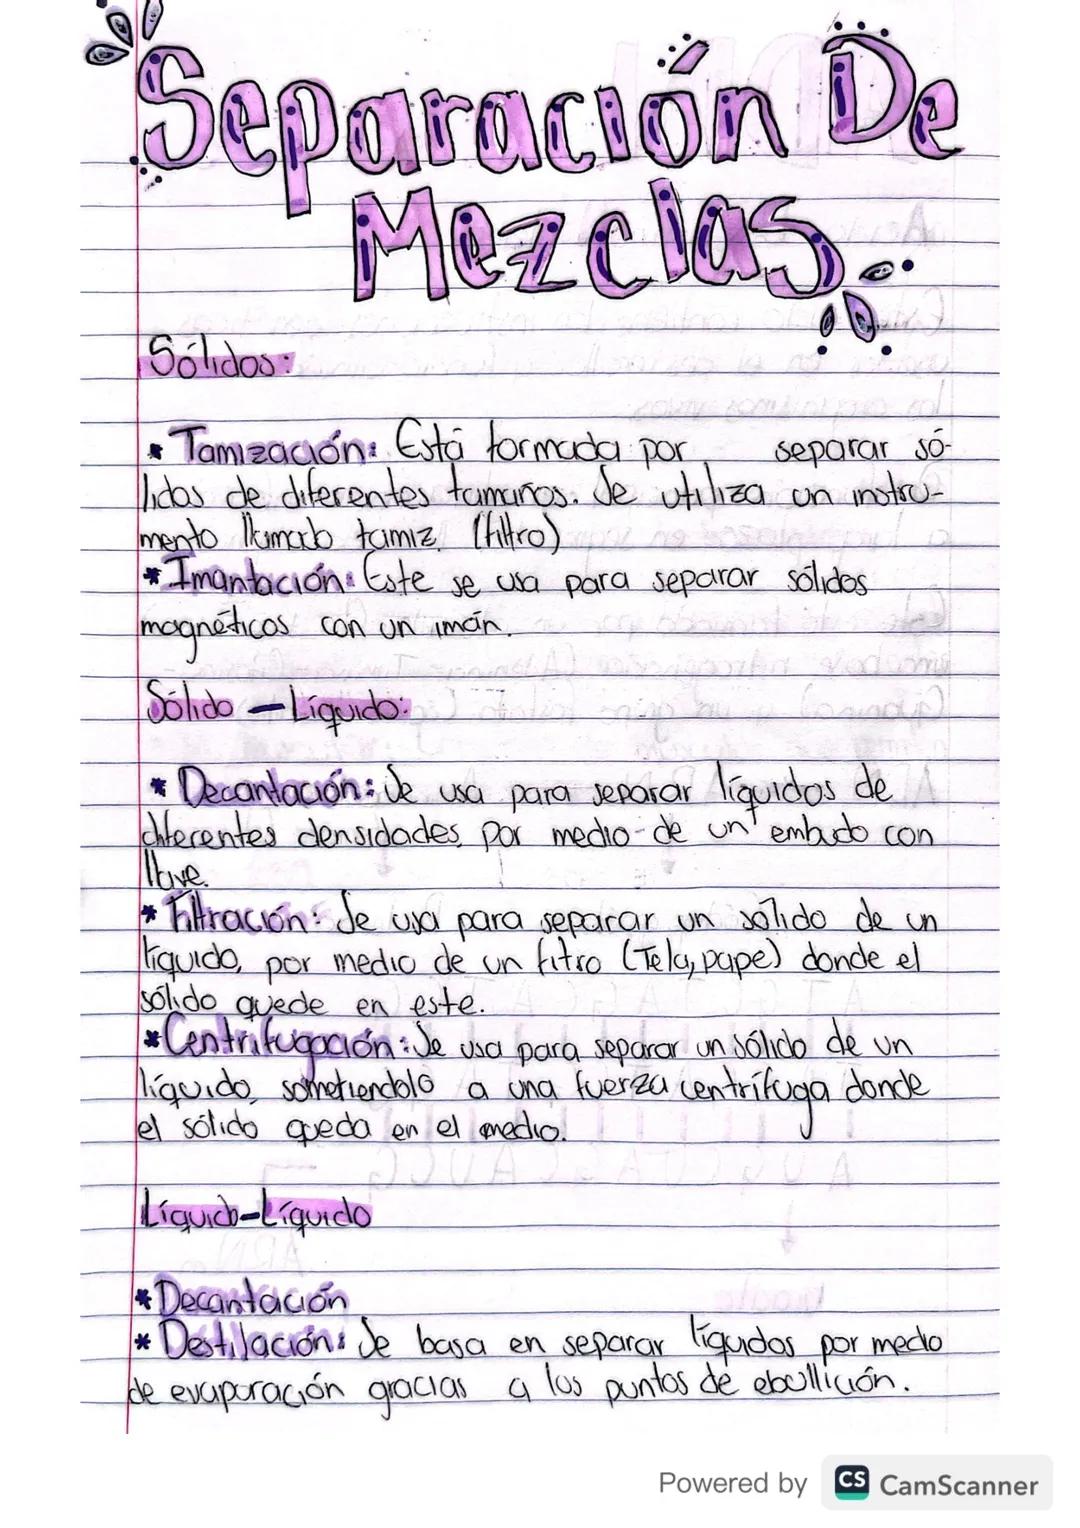 Separación De
Mezclas
Sólidos:
* Tamización: Está formada por separar só-
lidos de diferentes tamaños. Se utiliza un instru-
mento llamado tamiz. (filtro)
* Imantación: Este se usa para separar sólidos
magnéticos con un imán.
Sólido - Líquido:
* Decantación: Se usa para separar líquidos de
diferentes densidades, por medio de un embudo con
llave.
* Filtración: Se usa para separar un sólido de un
líquido, por medio de un fitro (Tela, pape) donde el
sólido quede en este.
* Centrifugación: Se usa para separar un sólido de un
líquido, sometiendolo a una fuerza centrífuga donde
el sólido queda en el medio.
Líquido-Líquido
* Decantación
* Destilación: Se basa en separar líquidos por medio
de evaporación gracias a los puntos de ebullición.
Powered by CS CamScanner